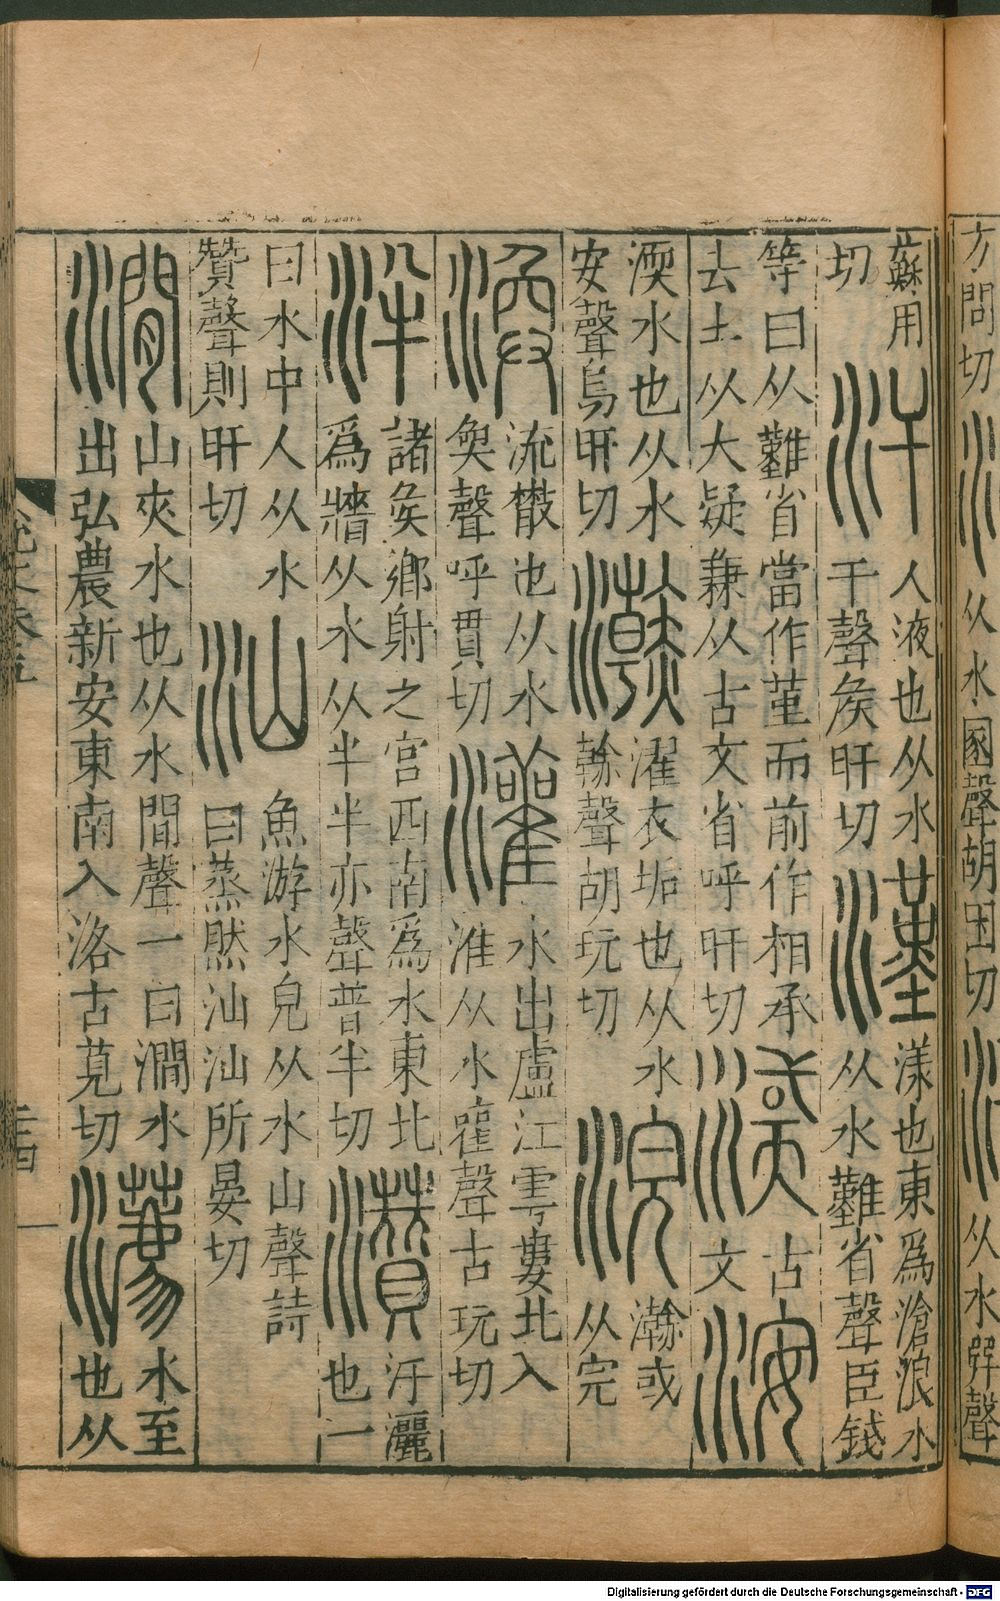 方問切溷从水圂聲胡困切
从水辟聲
蘇用汗人液也从水漢漾也東爲滄浪水
切干聲矦旰切从水難省聲臣鉉
等曰从難省當作堇而前作相承古洝
去土从大疑兼从古文省呼旰切文
渜水也从水澣濯衣垢也从水浣瀚或
安聲烏旰切榦聲胡玩切从完
渙流㪔也从水灌水出廬江雩婁北入
奐聲呼貫切淮从水雚聲古玩切
泮諸矦鄉射之宮西南爲水東北灒汙灑
爲牆从水从半半亦聲普半切也一
曰水中人从水汕魚游水皃从水山聲詩
贊聲則旰切曰蒸然汕汕所晏切
澗山夾水也从水間聲一曰澗水瀳水至
出弘農新安東南入洛古莧切也从
二十四
Digitalisierung gefördert durch die Deutsche Forschungsgemeinschaft - DFG